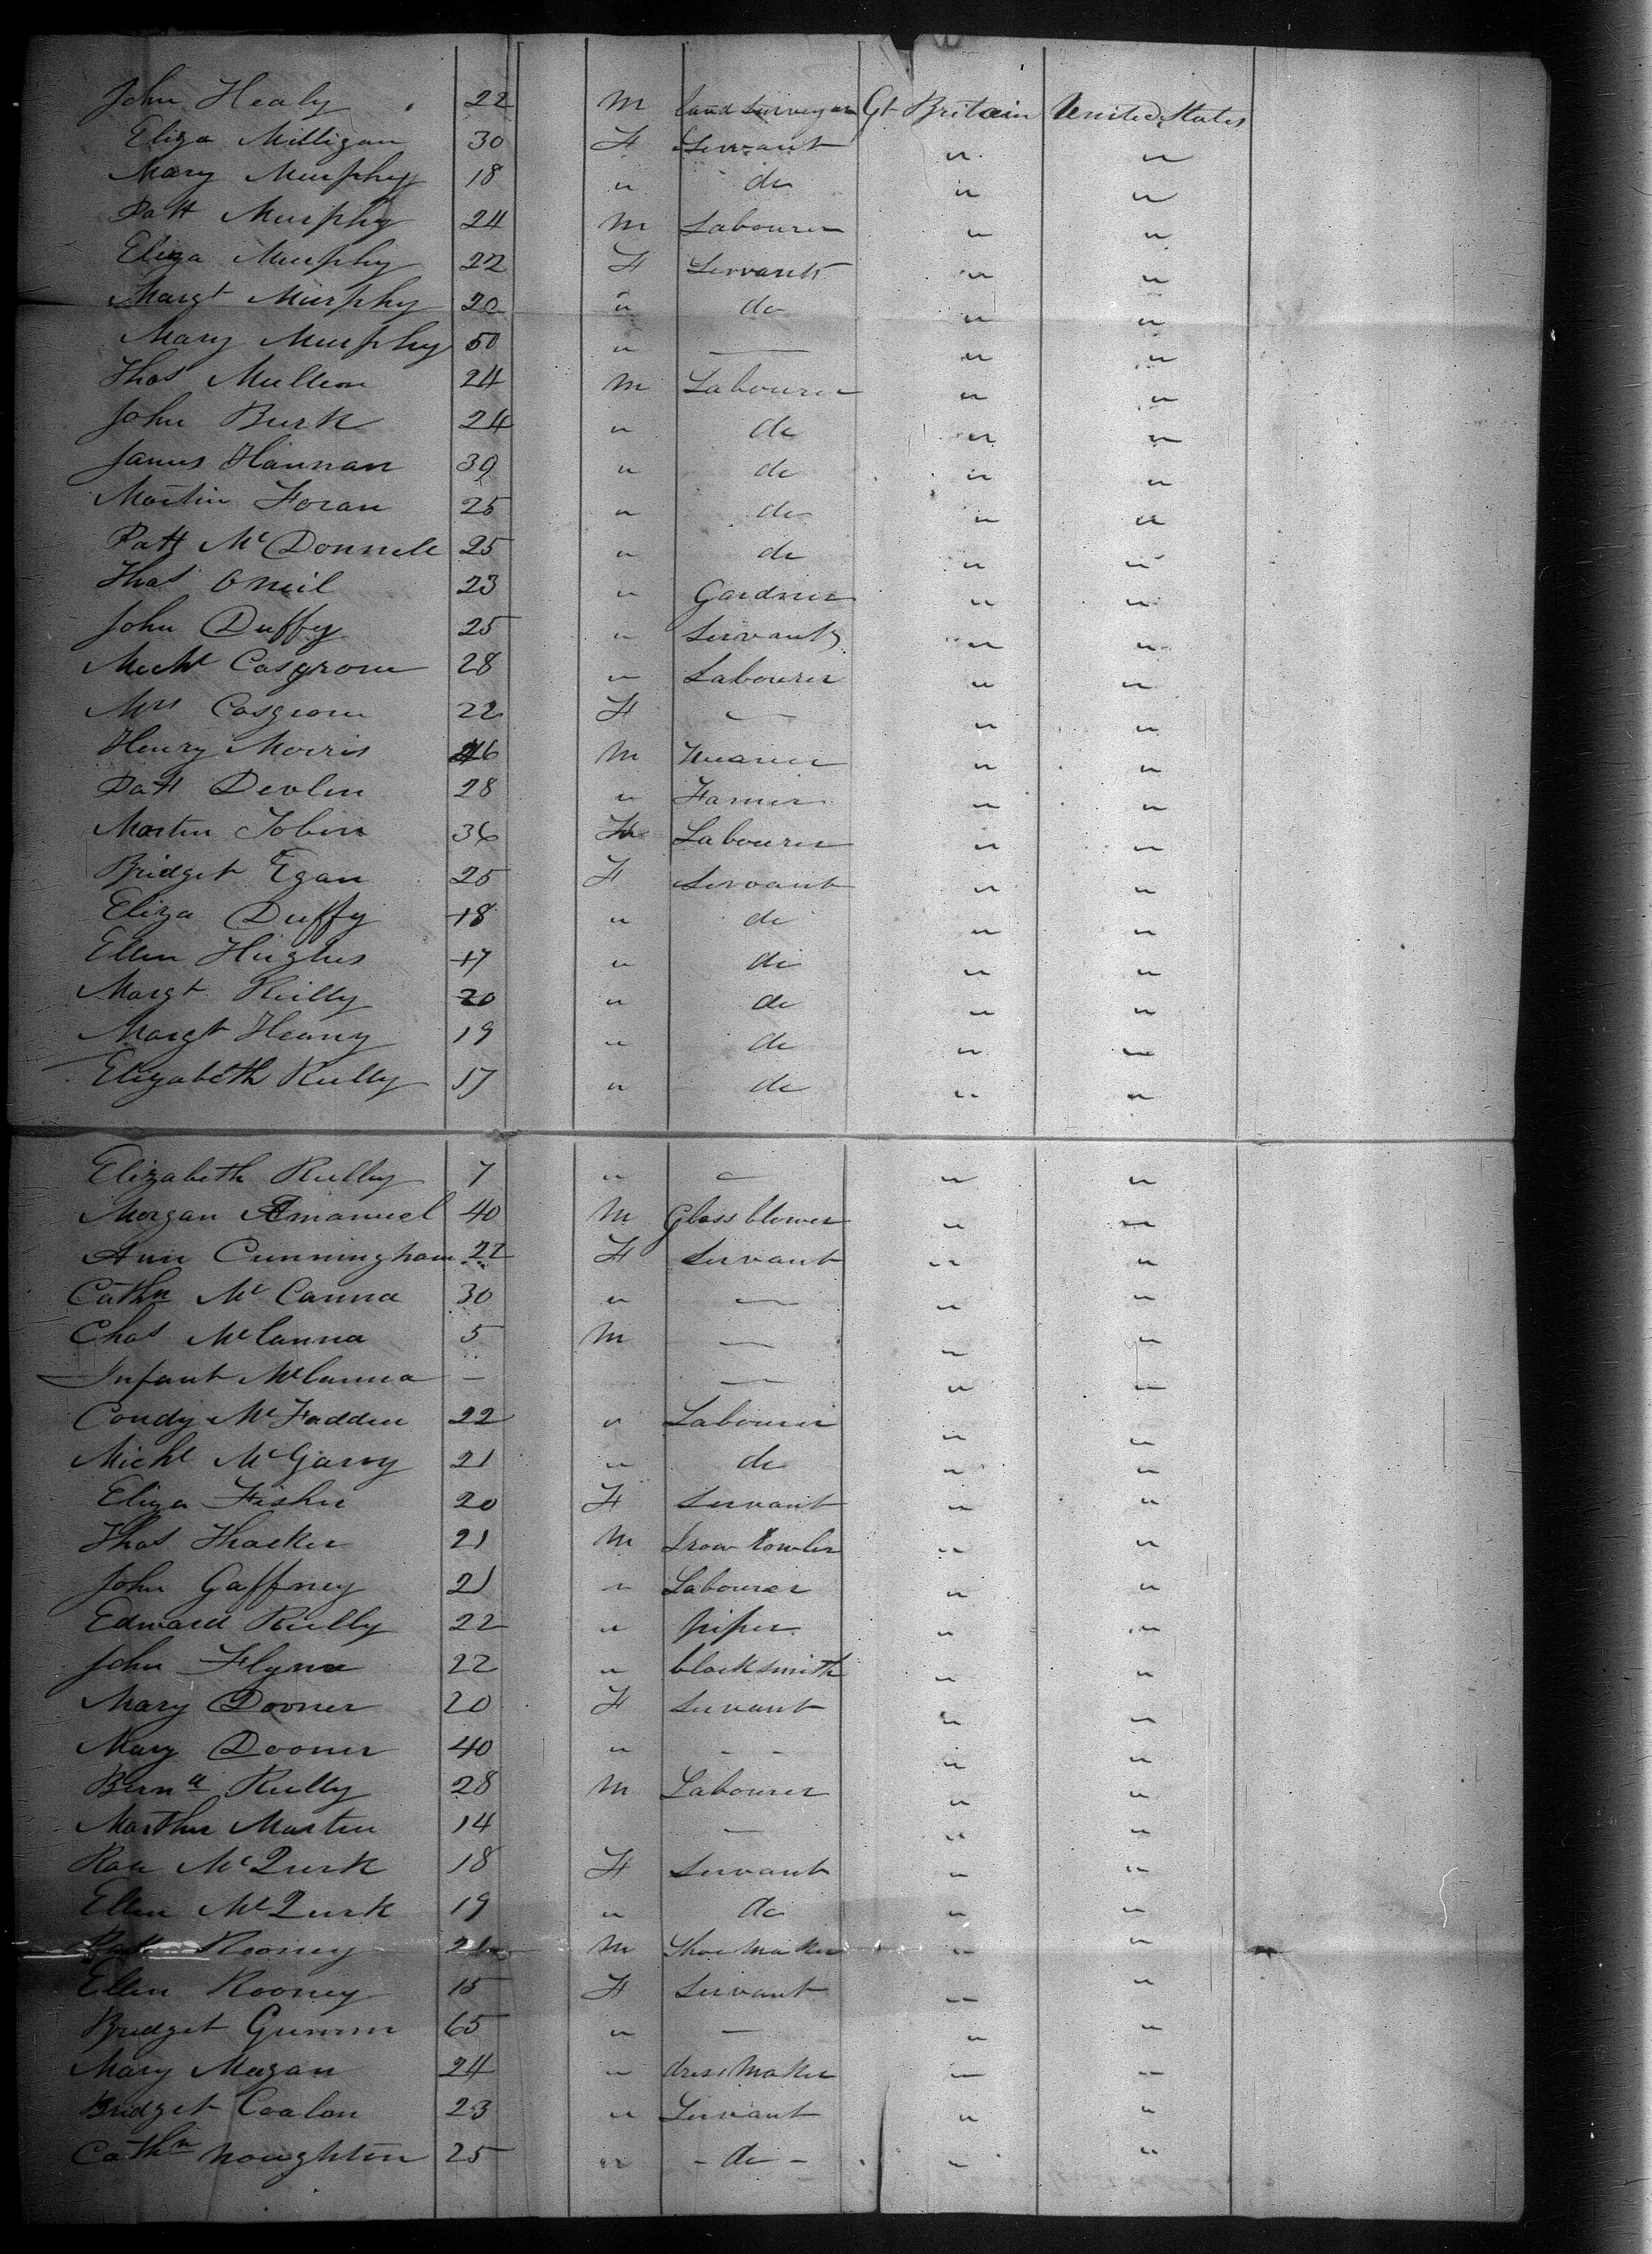 John Healy 22 M land surveyor Gt Britain United States
Eliza Milligan 30 F Servant " "
Mary Murphy 18 " do " "
Patt Murphy 24 M Labourer " "
Eliza Murphy 22 F Servant " "
Margt Murphy 20 " do " "
Mary Murphy 50 " — " "
Thos Mullen 24 M Labourer " "
John Burk 24 " do " "
James Hannan 39 " do " "
Martin Foran 25 " do " "
Patt McDonnell 25 " do " "
Thos Oneil 23 " Gardner " "
John Duffy 25 " Servant " "
Michl Cosgrove 28 " Labourer " "
Mrs Cosgrove 22 F — " "
Henry Morris 26 M Weaver " "
Patt Devlin 28 " Farmer " "
Martin Tobin 36 Labourer " "
Bridget Egan 25 F Servant " "
Eliza Duffy 18 " do " "
Ellen Hughes 17 " do " "
Margt Reilly 20 " do " "
Margt Heany 19 " do " "
Elizabeth Reilly 17 " do " "
Elizabeth Reilly 7 " — " "
Morgan Emanuel 40 M Glass blower " "
Ann Cunningham 22 F Servant " "
Cathn McCanna 30 " — " "
Chas McCanna 5 M — " "
Infant McCanna — — " "
Condy McFadden 22 " Labourer " "
Michl McGarvy 21 " do " "
Eliza Fisher 20 F Servant " "
Thos Thacker 21 M " "
John Gaffney 21 " Labourer " "
Edward Reilly 22 " piper " "
John Flynn 22 " blacksmith " "
Mary Dooner 20 F Servant " "
Mary Dooner 40 " — — " "
Bernd Reilly 28 M Labourer " "
Marther Martin 14 — " "
Rose McQurk 18 F Servant " "
Ellen McQurk 19 " do " "
Patt Rooney M Shoe Maker " "
Ellen Rooney 15 F Servant " "
Bridget 65 " — " "
Mary Magan 24 " dress Maker " "
Bridget Coalon 23 " Servant " "
Cathn Noughton 25 " - do - " "